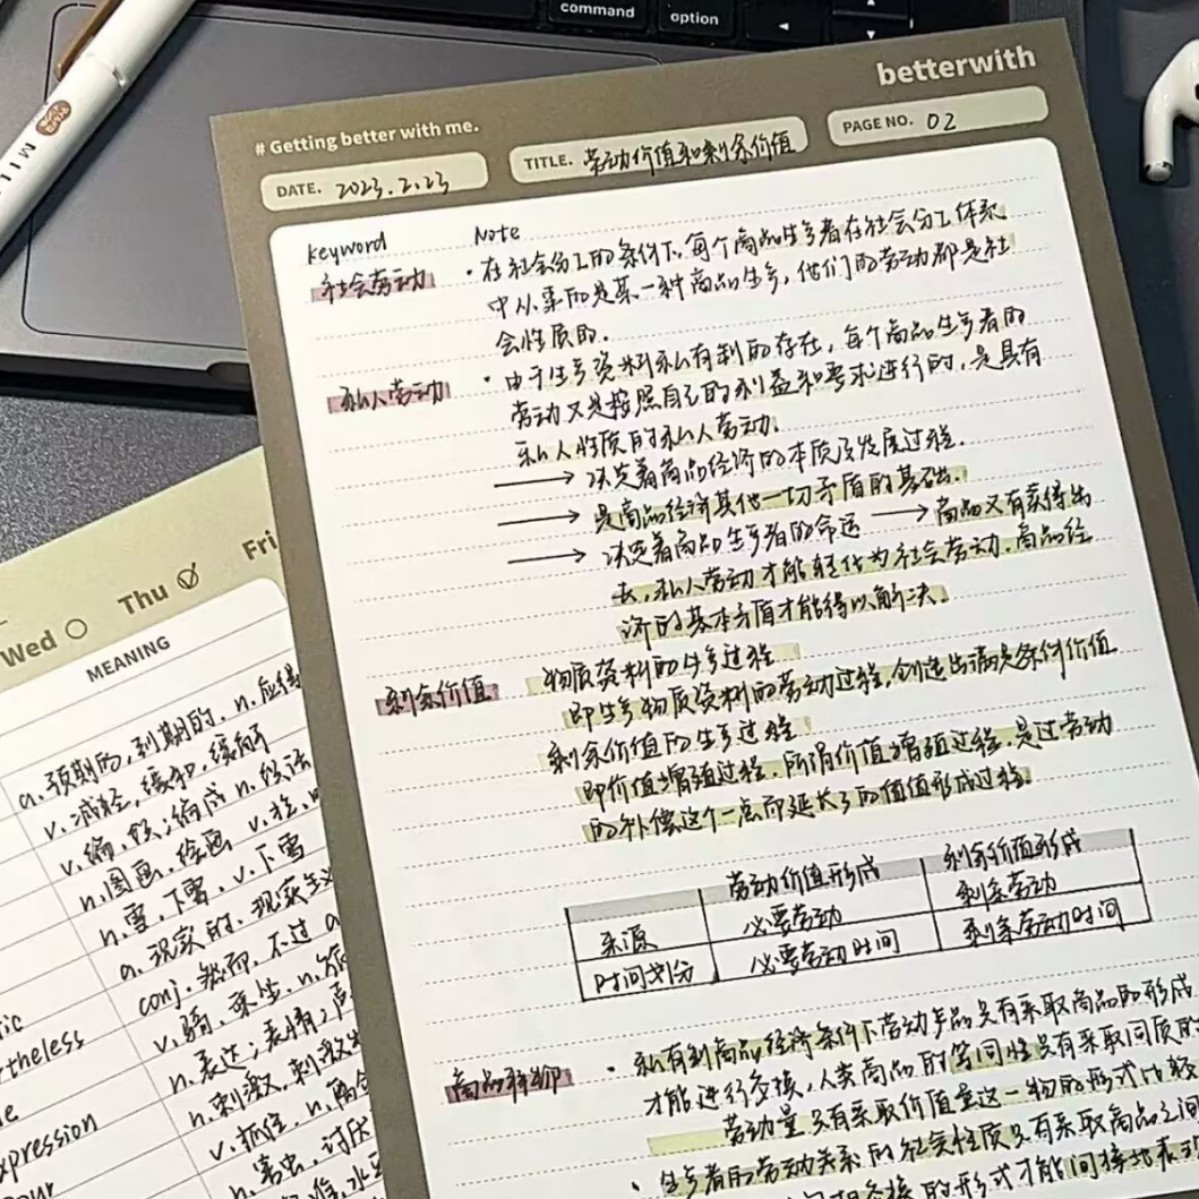 command
option
betterwith
# Getting better with me.
DATE. 2023.2.23
TITLE. 劳动价值和剩余价值
PAGE NO. 02
keyword
Note
社会劳动
·在社会分工的条件下,每个商品生产者在社会分工体系
中从事的是某一种商品生产,他们的劳动都是社
会性质的.
私人劳动
·由于生产资料私有制的存在,每个商品生产者的
劳动又是按照自己的利益和要求进行的,是具有
私人性质的私人劳动.
→ 决定着商品经济的本质及发展过程.
→ 是商品经济其他一切矛盾的基础.
→ 决定着商品生产者的命运 → 商品又有获得出
去,私人劳动才能转化为社会劳动.商品经
济的基本矛盾才能得以解决.
剩余价值
物质资料的生产过程
即生产物质资料的劳动过程,创造出满足条件价值
剩余价值的生产过程
即价值增殖过程.所谓价值增殖过程.是过劳动
的补偿这个一点而延长了的价值形成过程.
劳动价值形成
剩余价值形成
来源
必要劳动
剩余劳动
时间划分
必要劳动时间
剩余劳动时间
商品拜物
·私有制商品经济条件下劳动产品只有采取商品的形式
才能进行交换,人类商品的等同性只有采取同质的
劳动量只有采取价值量这一物的形式比较
·生产者的劳动关系的社会性质只有采取商品之间
交换的形式才能间接地表现
Wed
Thu
Fri
MEANING
a.预期的,到期的.n.应得
v.减轻,缓和,缓解
v.编,
n.图画,绘画 v.
n.雪,下雪,v.下雪
a.现实的,现实主义
conj.然而,不过
v.骑,乘坐.n.旅
n.表达;表情;声
n.刺激,刺激
v.抓住,n.
害虫,讨厌
rtheless
xpression